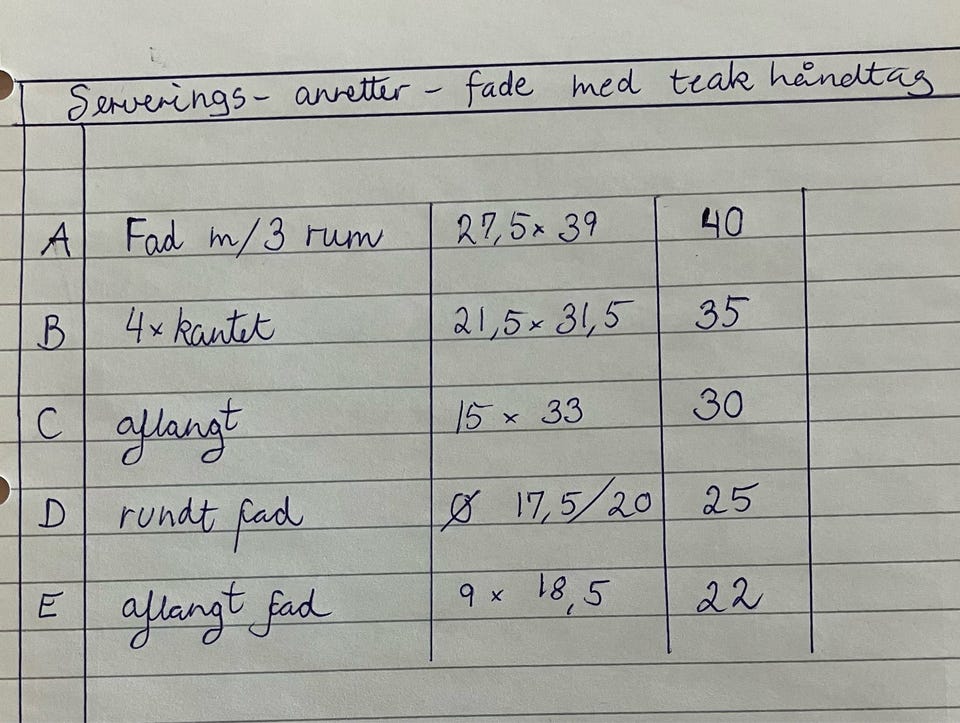 Serverings- anretter - fade med teak håndtag
A Fad m/3 rum 27,5 x 39 40
B 4x kantet 21,5 x 31,5 35
C aflangt 15 x 33 30
D rundt fad Ø 17,5/20 25
E aflangt fad 9 x 18,5 22